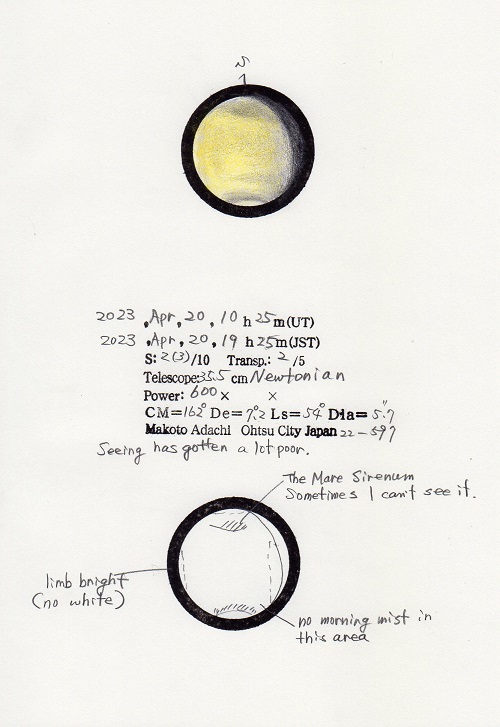 S
2023 , Apr, 20 , 10 h 25 m (UT)
2023 , Apr, 20 , 19 h 25 m (JST)
S: 2(3)/10 Transp.: 2 /5
Telescope: 35.5 cm Newtonian
Power: 600 × ×
CM=162° De=7.°2 Ls=54° Dia=5."7
Makoto Adachi Ohtsu City Japan 22-597
Seeing has gotten a lot poor.
The Mare Sirenum
Sometimes I can't see it.
limb bright
(no white)
no morning mist in
this area